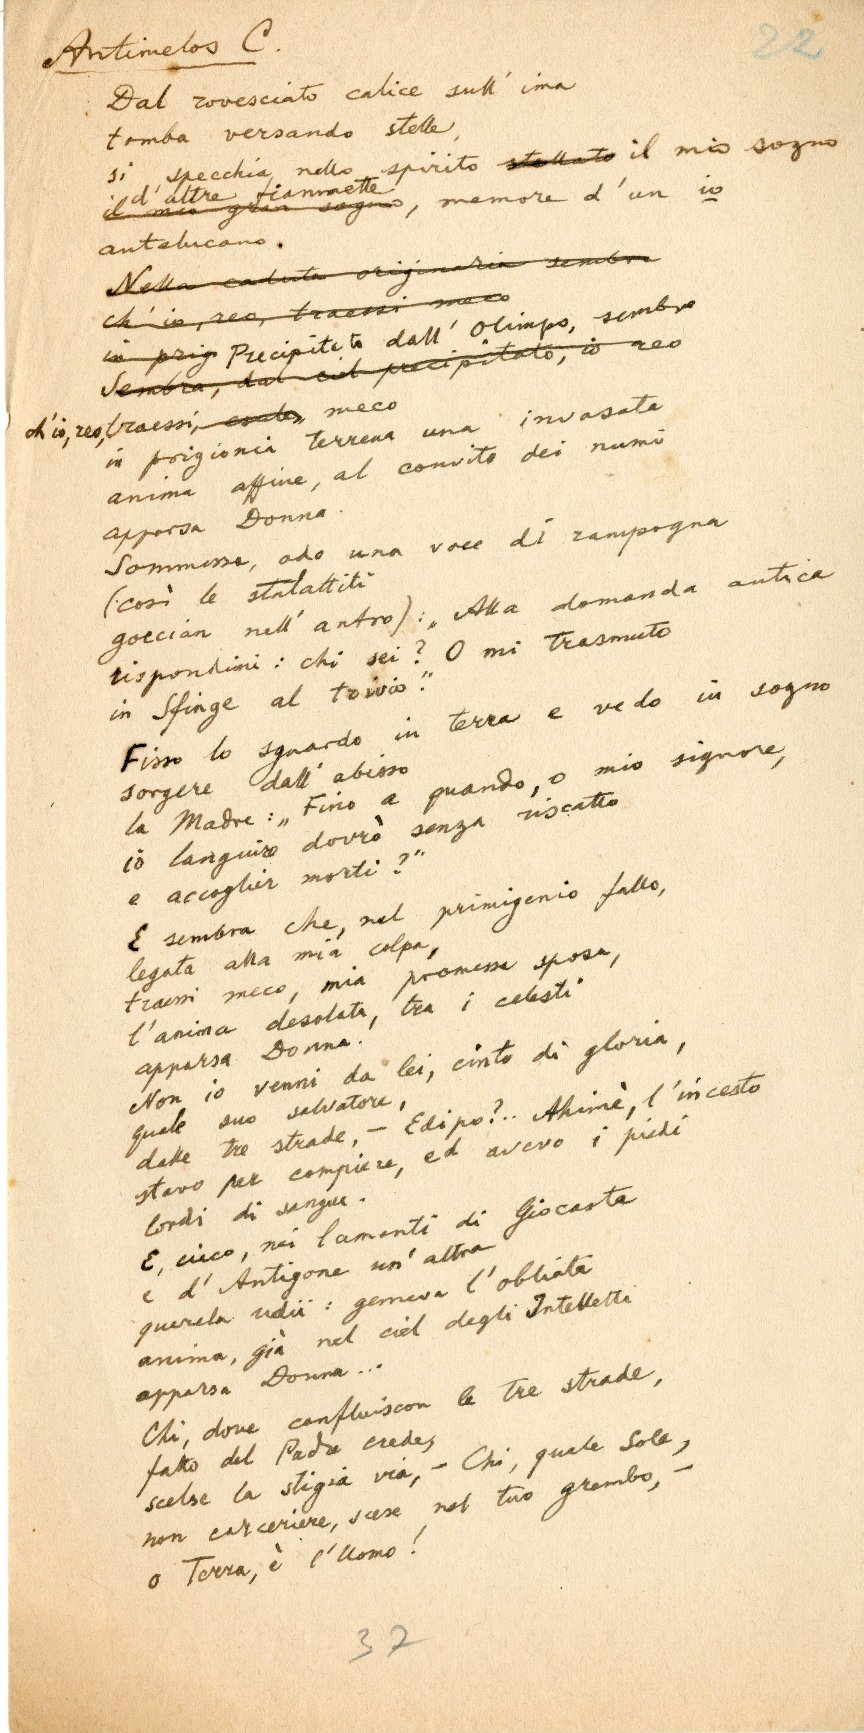 Antimelos C.
22
Dal rovesciato calice sull' ima
tomba versando stelle,
si specchia nello spirito stellato il mio sogno
d'altre fiammette
il mio gran sogno, memore d'un io
antelucano.
Nella caduta originaria sembra
ch'io, reo, traessi meco
in prig Precipitato dall' Olimpo, sembra
Sembra, dal ciel precipitato, io reo
ch'io, reo, traessi, meco
in prigionia terrena una invasata
anima affine, al convito dei numi
apparsa Donna.
Sommessa, odo una voce di rampogna
(così le stalattiti
goccian nell' antro): „Alla domanda antica
rispondimi: chi sei? O mi trasmuto
in Sfinge al trivio."
Fisso lo sguardo in terra e vedo in sogno
sorgere dall' abisso
la Madre: „Fino a quando, o mio signore,
io languire dovrò senza riscatto
e accoglier morti?"
E sembra che, nel primigenio fallo,
legata alla mia colpa,
traessi meco, mia promessa sposa,
l'anima desolata, tra i celesti
apparsa Donna.
Non io venni da lei, cinto di gloria,
quale suo salvatore,
dalle tre strade, – Edipo?.. Ahimè, l'incesto
stavo per compiere, ed avevo i piedi
lordi di sangue.
E, cieco, nei lamenti di Giocasta
e d'Antigone un' altra
querela udii: gemeva l'obliata
anima, già nel ciel degli Intelletti
apparsa Donna...
Chi, dove confluiscon le tre strade,
fatto del Padre erede,
scelse la stigia via, – Chi, quale Sole,
non carceriere, scese nel tuo grembo, –
o Terra, è l'Uomo!
37